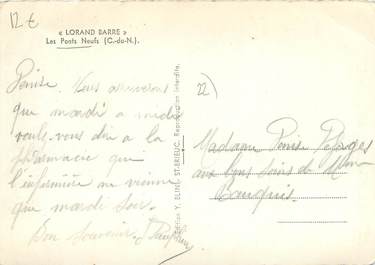 12 €
« LORAND BARRE »
Les Ponts Neufs (C.-du-N.).
Denise. Nous arriverons
que mardi à midi
voulez-vous dire à la
pharmacie que
l'infirmière ne vienne
que mardi soir.
Bon souvenir.
Edition Y. BLIN, ST-BRIEUC. Reproduction interdite.
22)
Madame Denise
aux bons soins de Mme